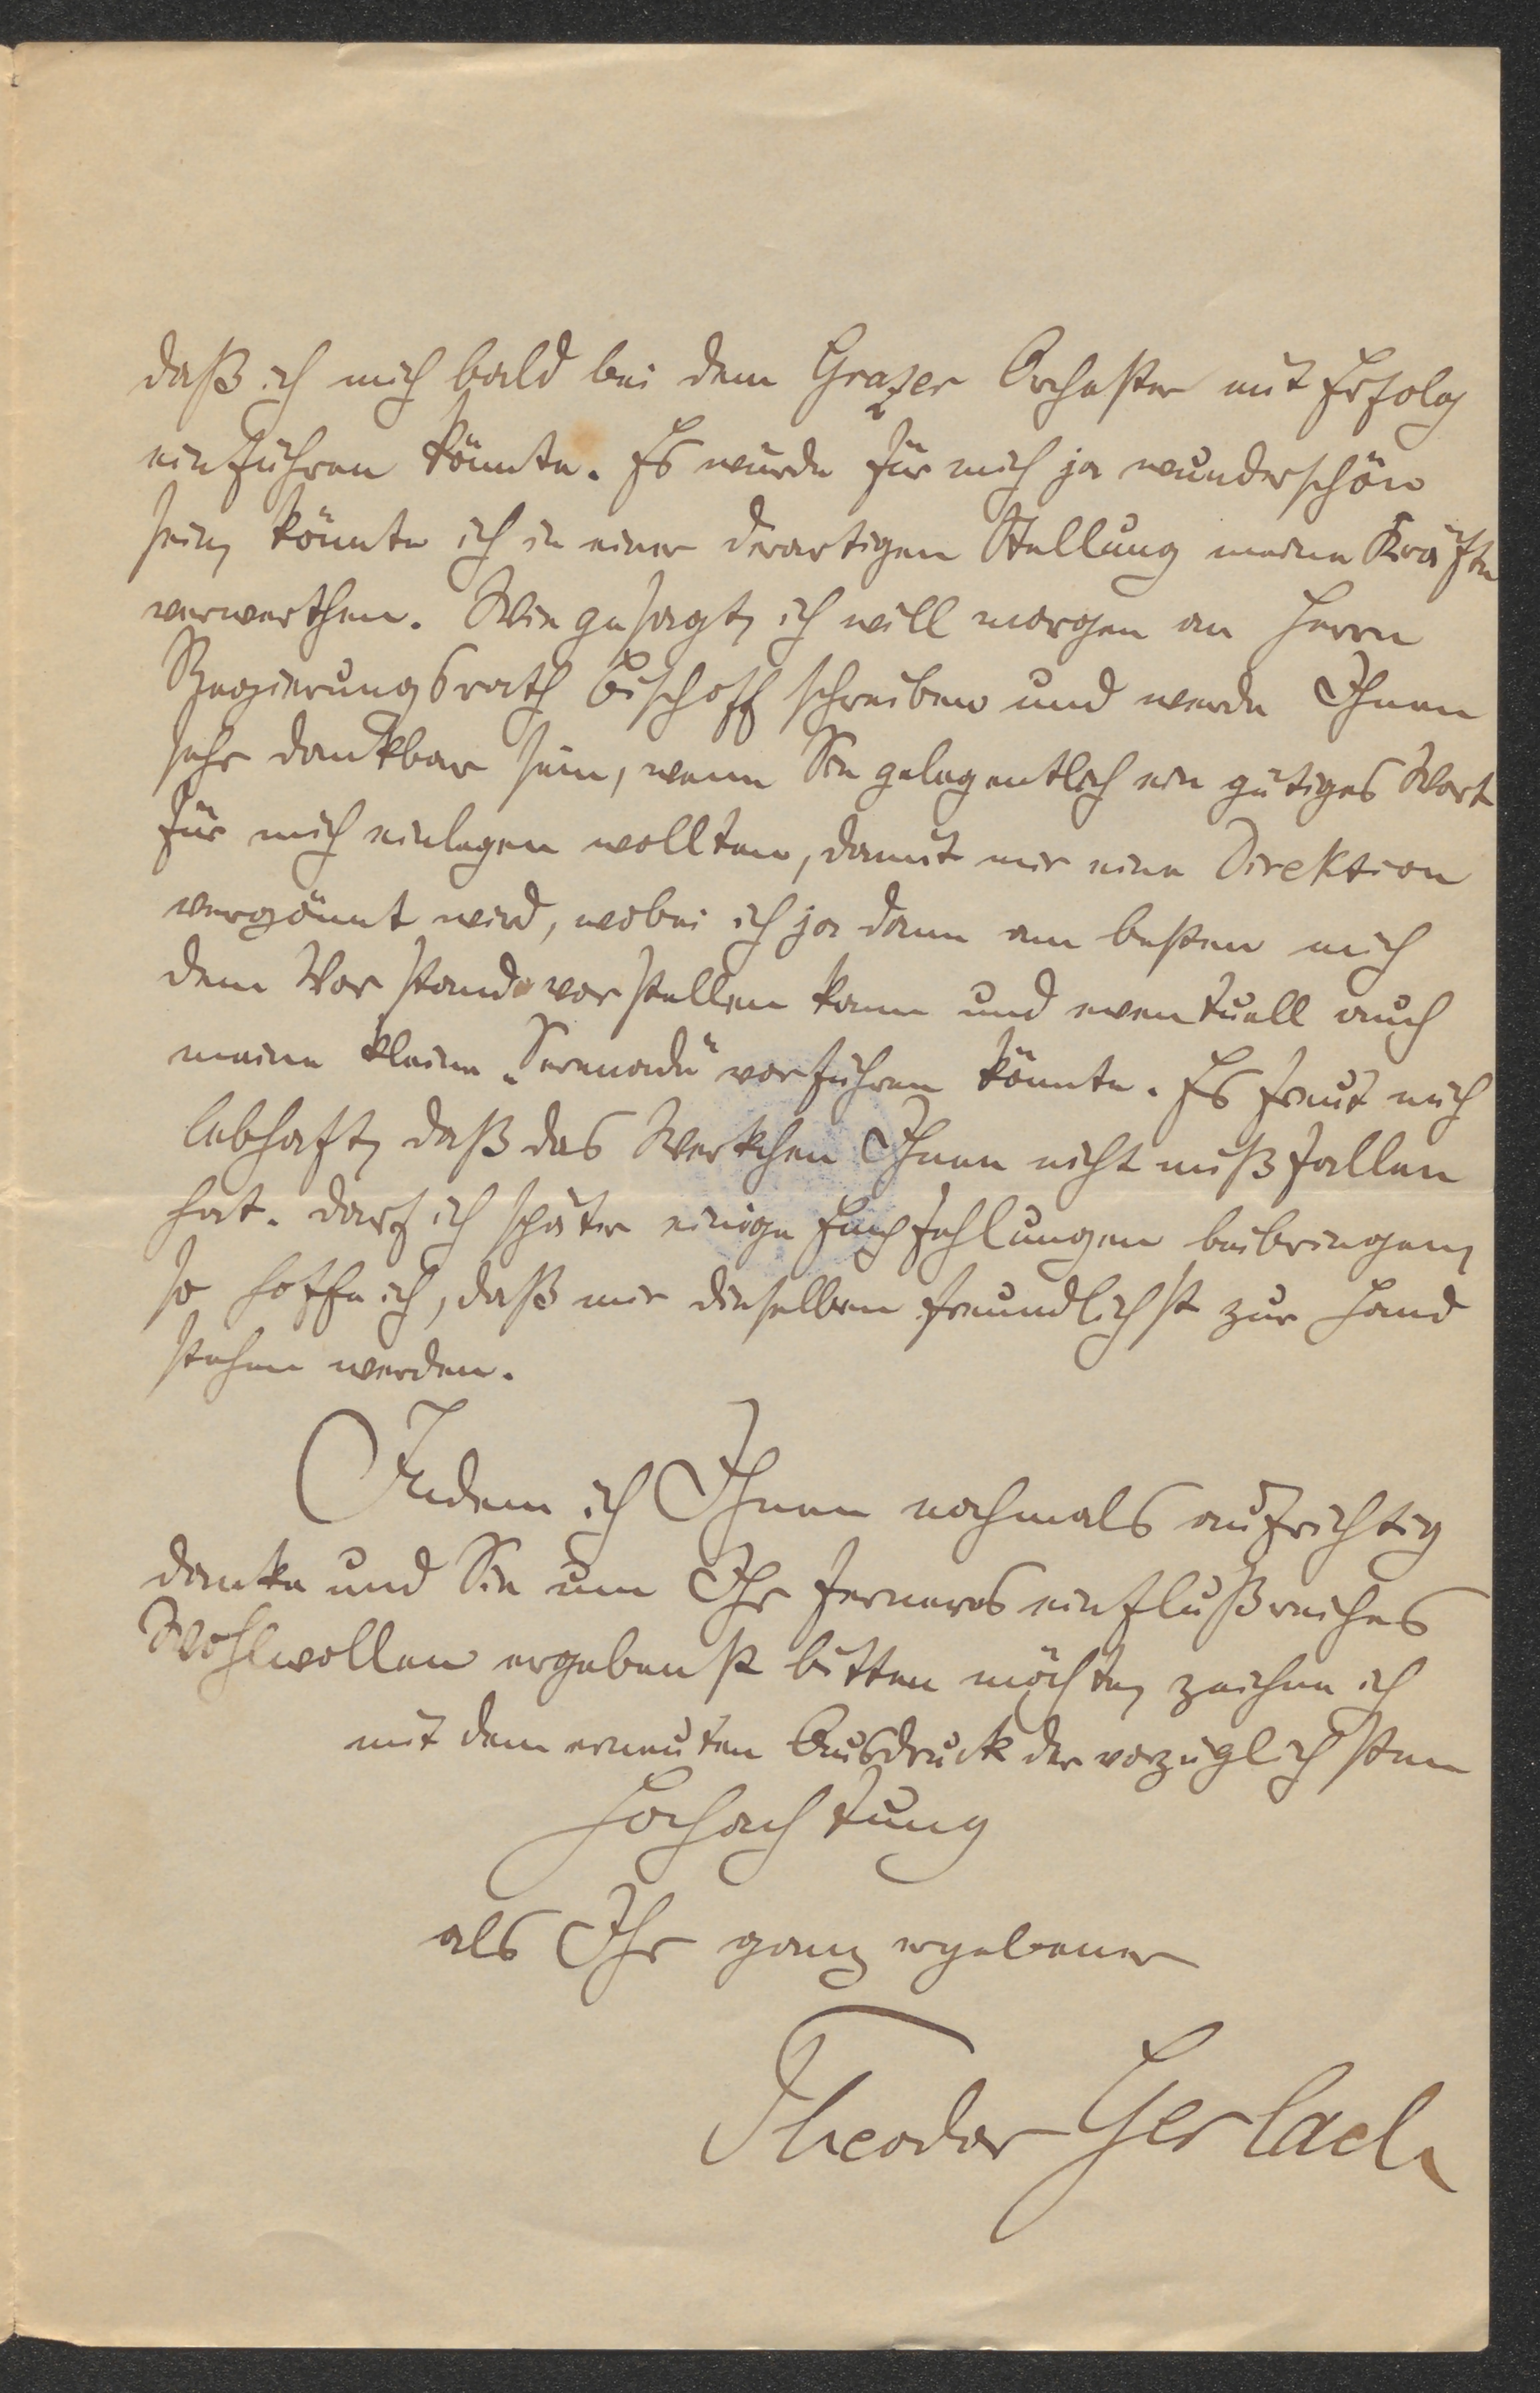 daß ich mich bald bei dem Grazer Orchester mit Erfolg
einführen könnte. Es würde für mich ja wunderschön
sein, könnte ich in einer derartigen Stellung meine Kräfte
verwerthen. Wie gesagt, ich will morgen an Herrn
Regierungsrath Bischoff schreiben und werde Ihnen
sehr dankbar sein, wenn Sie gelegentlich ein gütiges Wort
für mich einlegen wollten, damit mir eine Direktion
vergönnt wird, wobei ich ja dann am besten mich
dem Vorstande vorstellen kann und eventuell auch
meine kleine „Serenade" vorführen könnte. Es freut mich
lebhaft, daß das Werkchen Ihnen nicht mißfallen
hat. Darf ich später einige Empfehlungen beibringen,
so hoffe ich, daß mir dieselben freundlichst zur Hand
stehen werden.
Indem ich Ihnen nochmals aufrichtig
danke und Sie um Ihr ferneres einflußreiches
Wohlwollen ergebenst bitten möchte, zeichne ich
mit dem erneuten Ausdruck der vorzüglichsten
Hochachtung
als Ihr ganz ergebener
Theodor Gerlach